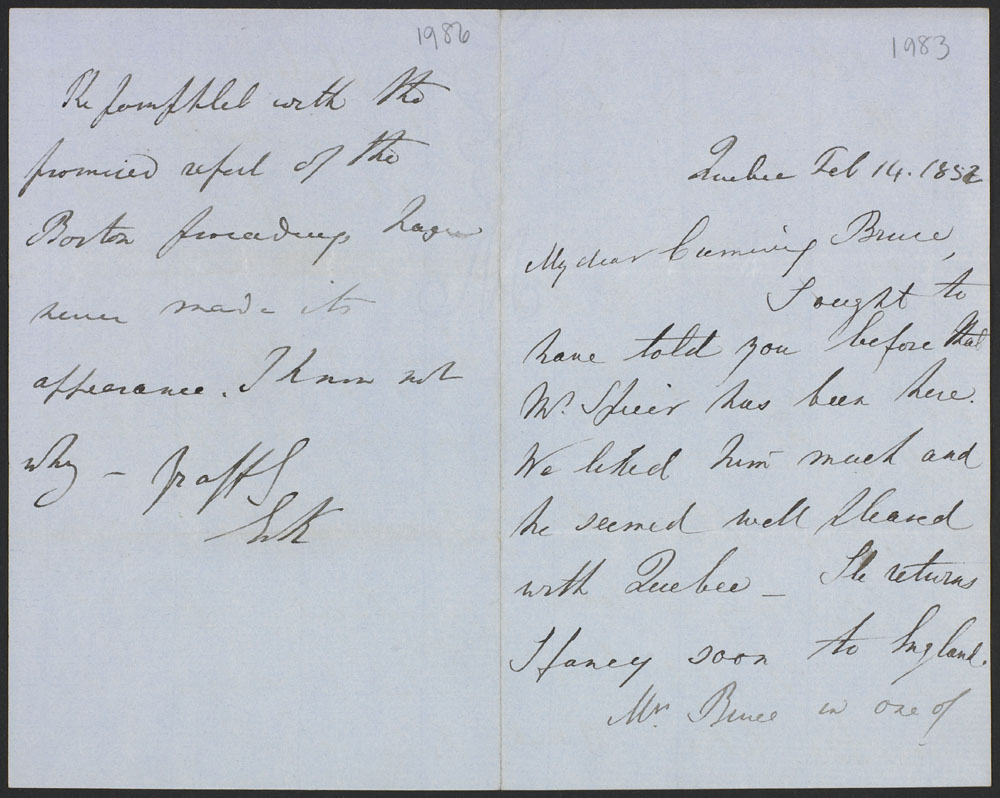 1986
The pamphlet with the
promised report of the
Boston proceedings has
never made its
appearance. I know not
why —
E&K
1983
Quebec Feb 14. 1852
My dear Cumming Bruce,
I ought to
have told you before that
Mr. Speir has been here.
We liked him much and
he seemed well pleased
with Quebec — He returns
I fancy soon to England.
Mrs. Bruce in one of